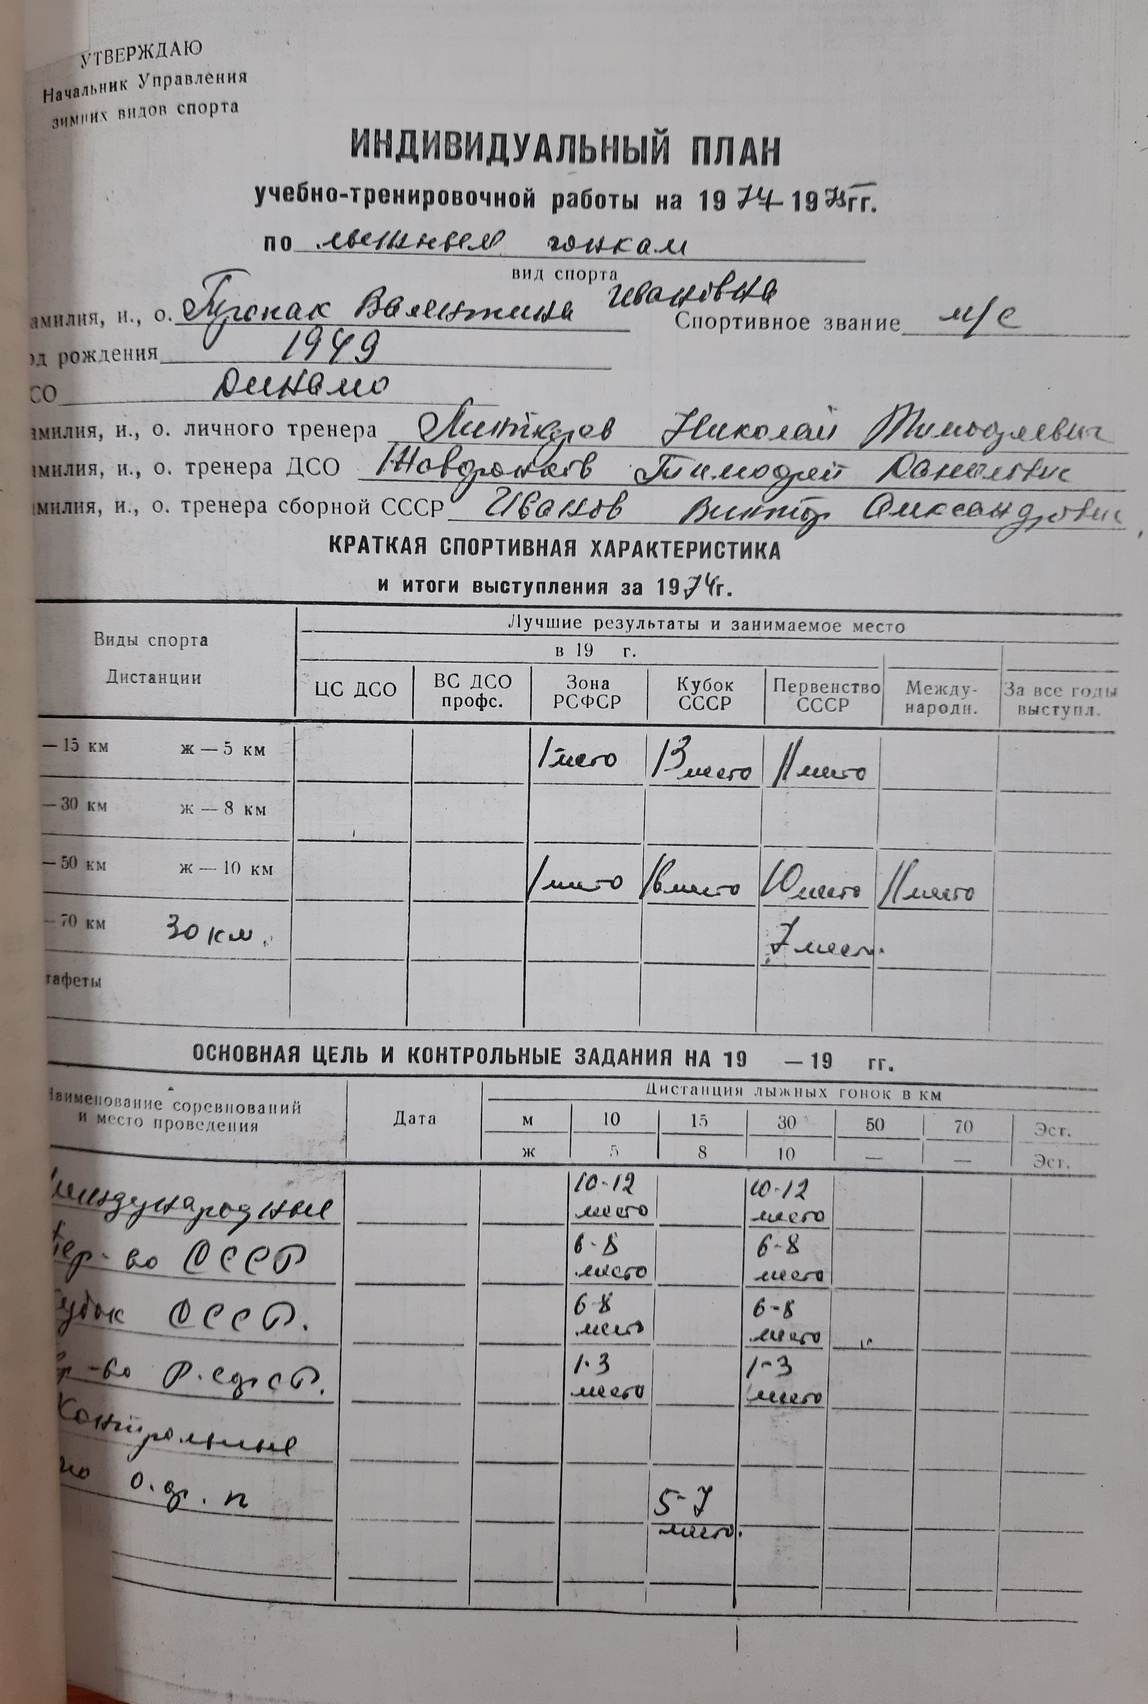 УТВЕРЖДАЮ
Начальник Управления
зимних видов спорта
ИНДИВИДУАЛЬНЫЙ ПЛАН
учебно-тренировочной работы на 1974-1975гг.
по лыжным гонкам
вид спорта
амилия, и., о. Валентина Ивановна Спортивное звание м/с
од рождения 1949
СО Динамо
амилия, и., о. личного тренера Николай Тимофеевич
амилия, и., о. тренера ДСО Тимофей Данилович
амилия, и., о. тренера сборной СССР Иванов Виктор Александрович
КРАТКАЯ СПОРТИВНАЯ ХАРАКТЕРИСТИКА
и итоги выступления за 1974г.
Виды спорта Дистанции
Лучшие результаты и занимаемое место
в 19 г.
ЦС ДСО ВС ДСО профс. Зона РСФСР Кубок СССР Первенство СССР Между-народн. За все годы выступл.
— 15 км ж — 5 км 1 место 13 место 11 место
— 30 км ж — 8 км
— 50 км ж — 10 км 1 место 16 место 10 место 11 место
— 70 км 30 км. 7 мест.
тафеты
ОСНОВНАЯ ЦЕЛЬ И КОНТРОЛЬНЫЕ ЗАДАНИЯ НА 19 — 19 гг.
Наименование соревнований и место проведения Дата
Дистанция лыжных гонок в км
м 10 15 30 50 70 Эст.
ж 5 8 10 — — Эст.
международные 10-12 место 10-12 место
Пер-во СССР 6-8 место 6-8 место
Кубок СССР. 6-8 место 6-8 место
р-во РСФСР. 1-3 место 1-3 место
Контрольные
по о.ф.п 5-7 место.